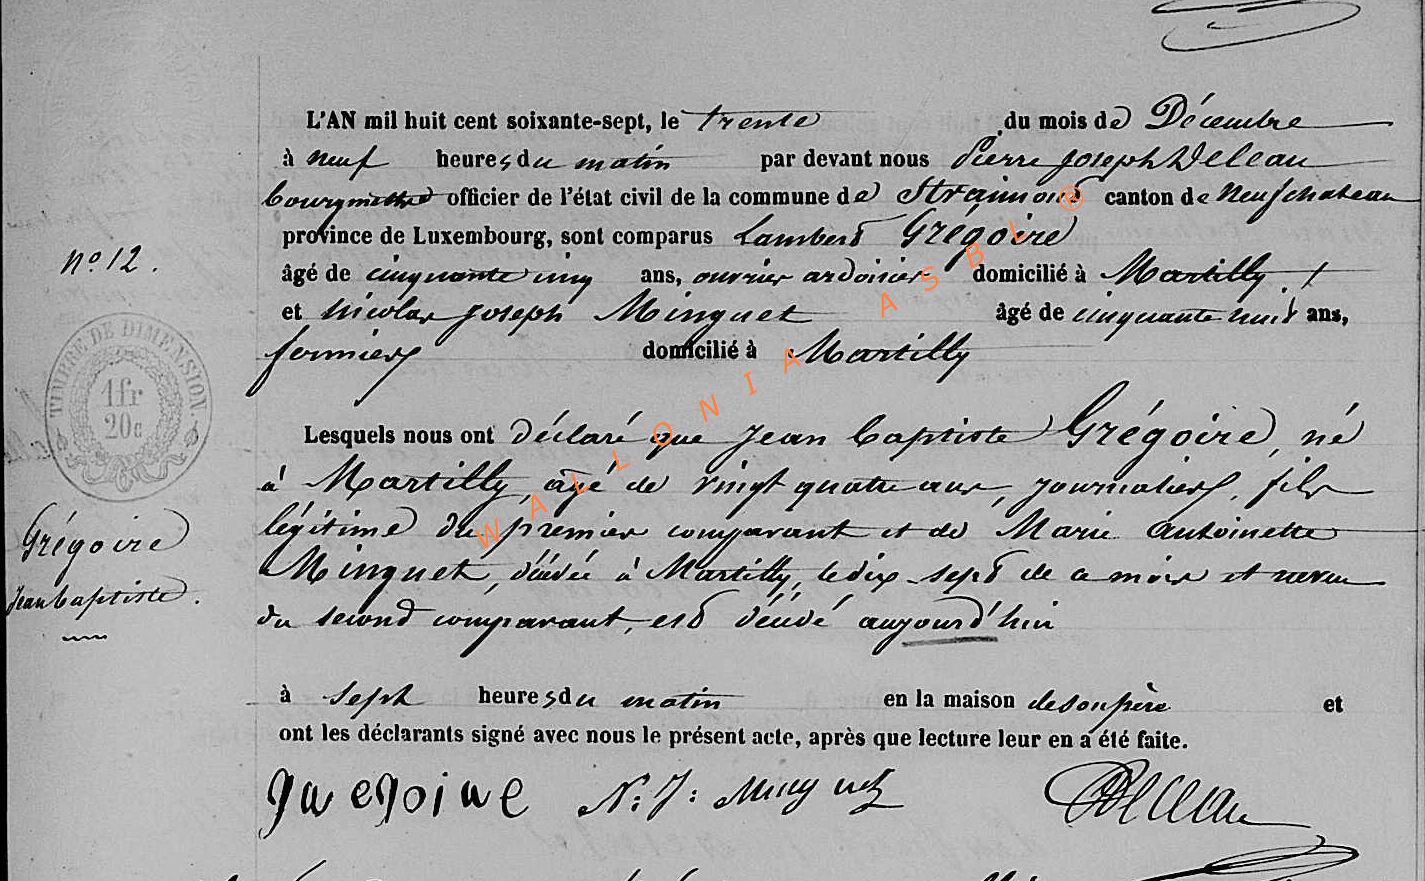 L'AN mil huit cent soixante-sept, le trente du mois de Décembre
à neuf heures du matin par devant nous Pierre Joseph Deleau
bourgmestre officier de l'état civil de la commune de Straimont canton de Neufchateau
province de Luxembourg, sont comparus Lambert Grégoire
n° 12.
âgé de cinquante cinq ans, ouvrier ardoisier domicilié à Martilly
et Nicolas Joseph Minguet âgé de cinquante huit ans,
fermier domicilié à Martilly
TIMBRE DE DIMENSION.
1fr
20c
Lesquels nous ont déclaré que Jean Baptiste Grégoire, né
à Martilly, âgé de vingt quatre ans, journalier, fils
légitime du premier comparant et de Marie Antoinette
Minguet, décédée à Martilly, le dix-sept de ce mois et neveu
du second comparant, est décédé aujourd'hui
Grégoire
Jean baptiste.
à sept heures du matin en la maison de son père et
ont les déclarants signé avec nous le présent acte, après que lecture leur en a été faite.
N: J: Minguet Deleau
WALLONIA ASBL ®